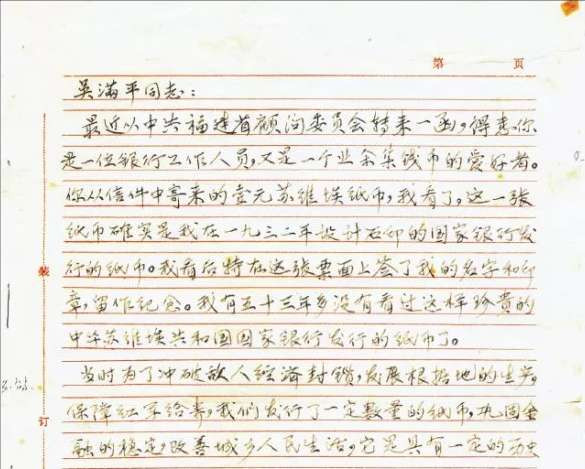 第 页
吴满平同志：
最近从中共福建省顾问委员会转来一函，得悉你
是一位银行工作人员，又是一个业余集钱币的爱好者。
你从信件中寄来的壹元苏维埃纸币，我看了。这一张
纸币确实是我在一九三二年设计石印的国家银行发
行的纸币。我看后特在这张票面上签了我的名字和印
章，留作纪念。我有五十三年多没有看过这样珍贵的
中华苏维埃共和国国家银行发行的纸币了。
装
当时为了冲破敌人经济封锁，发展根据地的生产，
保障红军给养，我们发行了一定数量的纸币，巩固金
订
融的稳定，改善城乡人民生活，它是具有一定的历史